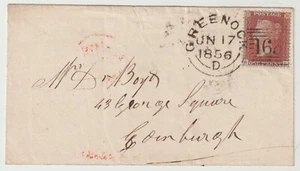 GREENOCK
JUN 17
1856
D
POSTAGE
163
Mrs Dr Boyd
43 George Square
Edinburgh